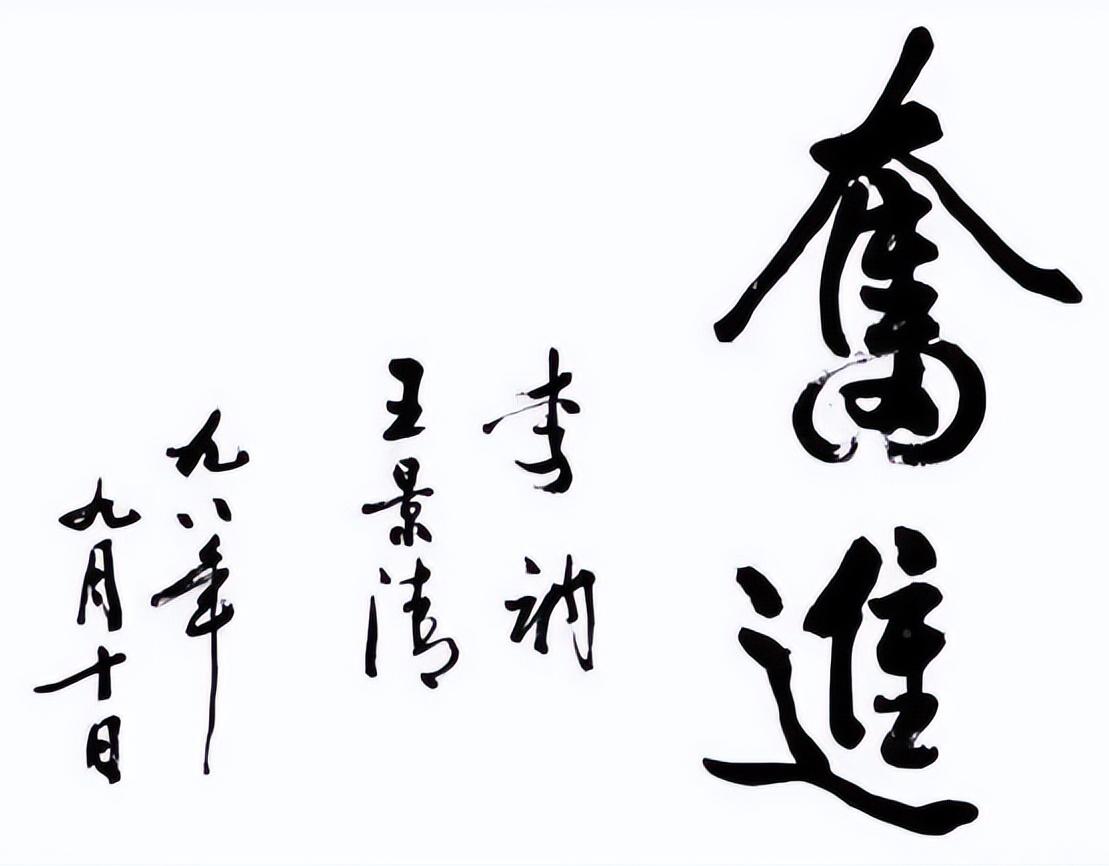 奮進
李訥
王景清
九八年
九月十日